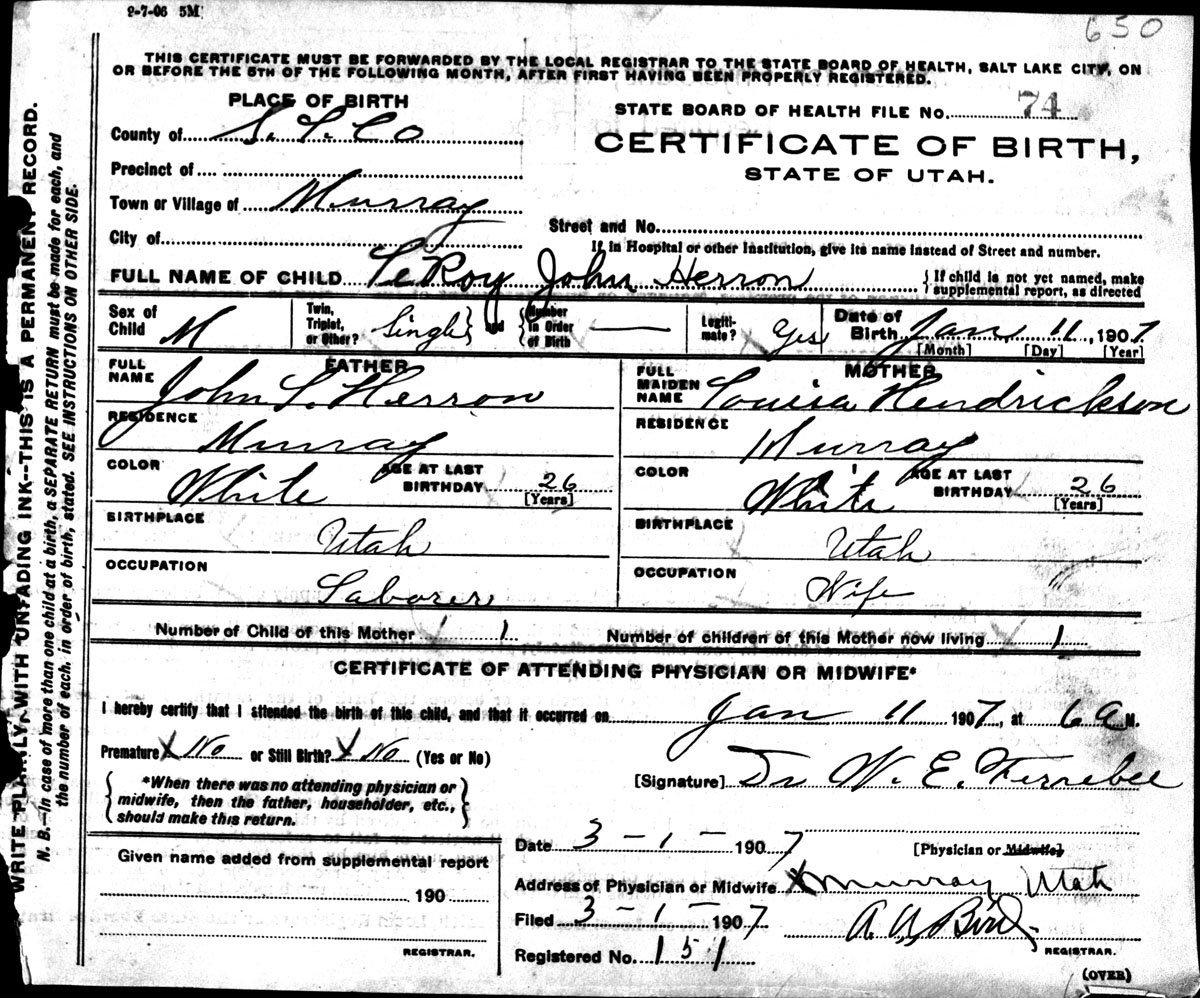 2-7-06 5M
650
THIS CERTIFICATE MUST BE FORWARDED BY THE LOCAL REGISTRAR TO THE STATE BOARD OF HEALTH, SALT LAKE CITY, ON
OR BEFORE THE 5TH OF THE FOLLOWING MONTH, AFTER FIRST HAVING BEEN PROPERLY REGISTERED.
PLACE OF BIRTH
STATE BOARD OF HEALTH FILE No. 74
County of S. L. Co
CERTIFICATE OF BIRTH,
STATE OF UTAH.
Precinct of
Town or Village of Murray
Street and No.
City of
If in Hospital or other Institution, give its name instead of Street and number.
FULL NAME OF CHILD LeRoy John Herron {If child is not yet named, make
supplemental report, as directed
Sex of Child M
Twin, Triplet, or Other? Single and Number in Order of Birth —
Legiti-mate? Yes
Date of Birth Jan 11, 1907
[Month] [Day] [Year]
FATHER
FULL NAME John L. Herron
RESIDENCE Murray
COLOR White
AGE AT LAST BIRTHDAY 26
[Years]
BIRTHPLACE Utah
OCCUPATION Laborer
MOTHER
FULL MAIDEN NAME Louisa Hendrickson
RESIDENCE Murray
COLOR White
AGE AT LAST BIRTHDAY 26
[Years]
BIRTHPLACE Utah
OCCUPATION Wife
Number of Child of this Mother 1
Number of children of this Mother now living 1
CERTIFICATE OF ATTENDING PHYSICIAN OR MIDWIFE*
I hereby certify that I attended the birth of this child, and that it occurred on Jan 11 1907, at 6 A M.
Premature X No or Still Birth? X No (Yes or No)
[Signature] Dr W. E. Ferrebee
{*When there was no attending physician or
midwife, then the father, householder, etc.,
should make this return.}
Date 3-1- 1907
[Physician or Midwife]
Given name added from supplemental report
190
REGISTRAR.
Address of Physician or Midwife X Murray Utah
Filed 3-1- 1907
A. A. Bird
REGISTRAR.
Registered No. 151
(OVER)
WRITE PLAINLY, WITH UNFADING INK--THIS IS A PERMANENT RECORD.
N. B.—In case of more than one child at a birth, a SEPARATE RETURN must be made for each, and
the number of each, in order of birth, stated. SEE INSTRUCTIONS ON OTHER SIDE.